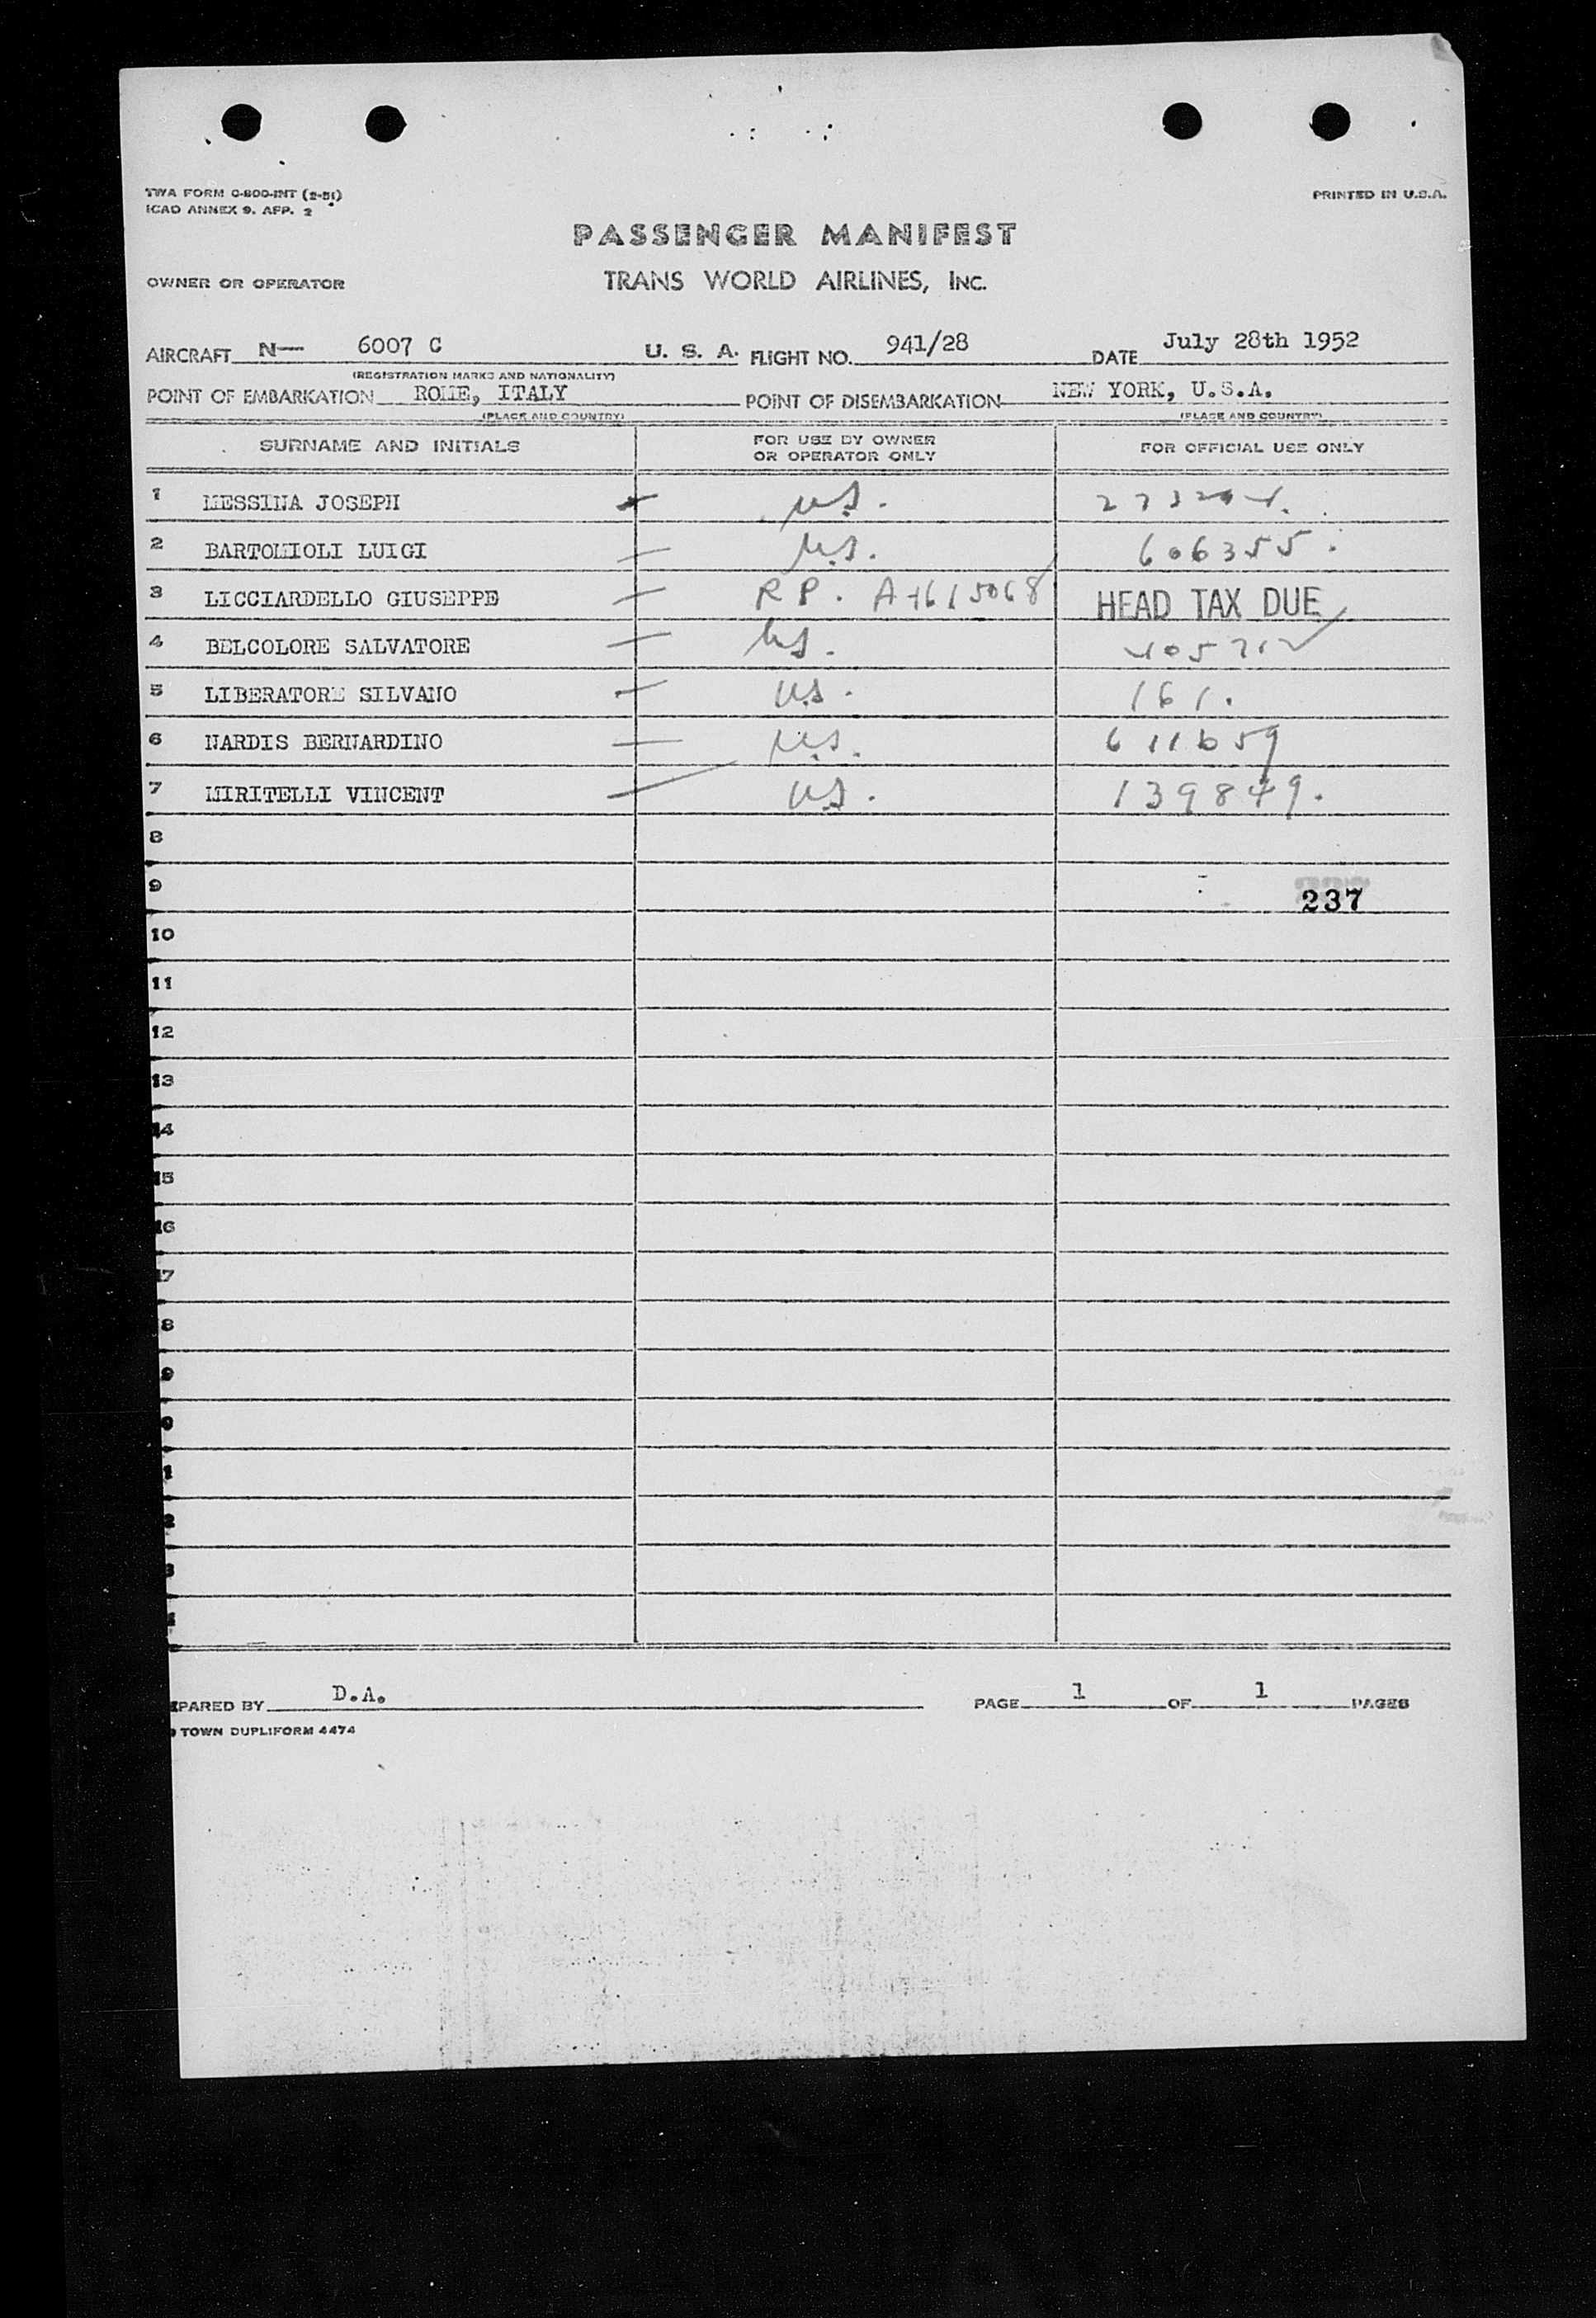 TWA FORM C-800-INT (2-51)
ICAO ANNEX 9. APP. 2
PRINTED IN U.S.A.
PASSENGER MANIFEST
OWNER OR OPERATOR
TRANS WORLD AIRLINES, INC.
AIRCRAFT N— 6007 C U. S. A. FLIGHT NO. 941/28 DATE July 28th 1952
(REGISTRATION MARKS AND NATIONALITY)
POINT OF EMBARKATION ROME, ITALY POINT OF DISEMBARKATION NEW YORK, U.S.A.
(PLACE AND COUNTRY) (PLACE AND COUNTRY)
SURNAME AND INITIALS FOR USE BY OWNER OR OPERATOR ONLY FOR OFFICIAL USE ONLY
1 MESSINA JOSEPH U.S.
2 BARTOMIOLI LUIGI U.S. 606355.
3 LICCIARDELLO GIUSEPPE RP. HEAD TAX DUE
4 BELCOLORE SALVATORE U.S.
5 LIBERATORE SILVANO U.S. 161.
6 NARDIS BERNARDINO U.S.
7 MIRITELLI VINCENT U.S. 139849.
8
9 237
10
11
12
13
14
15
16
17
8
9
0
1
2
3
4
EPARED BY D.A. PAGE 1 OF 1 PAGES
TOWN DUPLIFORM 4474